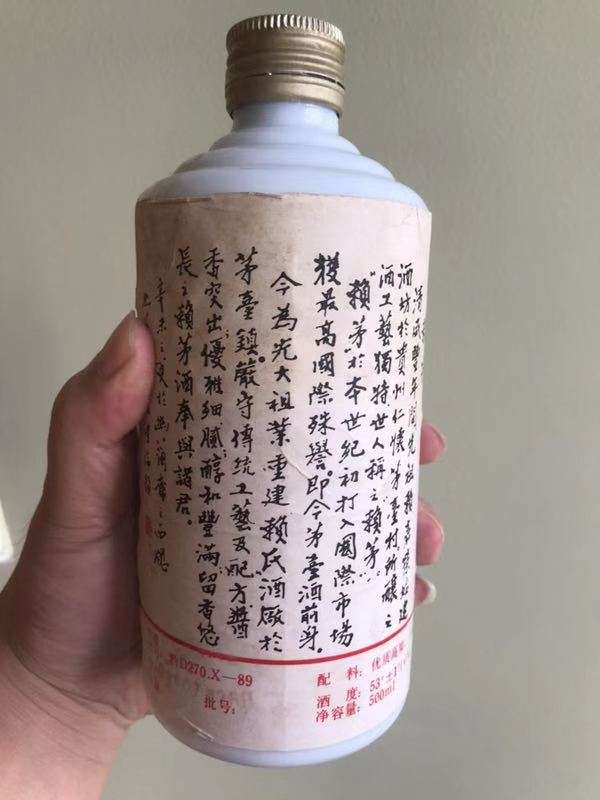 咸豐年間先祖賴嘉榮始建
酒坊於貴州仁懷茅臺村所釀之
酒工藝獨特世人稱之"賴茅"。
"賴茅"於本世紀初打入國際市場
獲最高國際殊譽。即今茅臺酒前身。
今為光大祖業重建賴氏酒廠於
茅臺鎮。嚴守傳統工藝及配方醬
香突出、優雅細膩、醇和豐滿、留香悠
長之賴茅酒奉與諸君。
辛未之夏於
黔D270.X—89
批号：
配料：优质高粱
酒度：53°±1
净容量：500ml